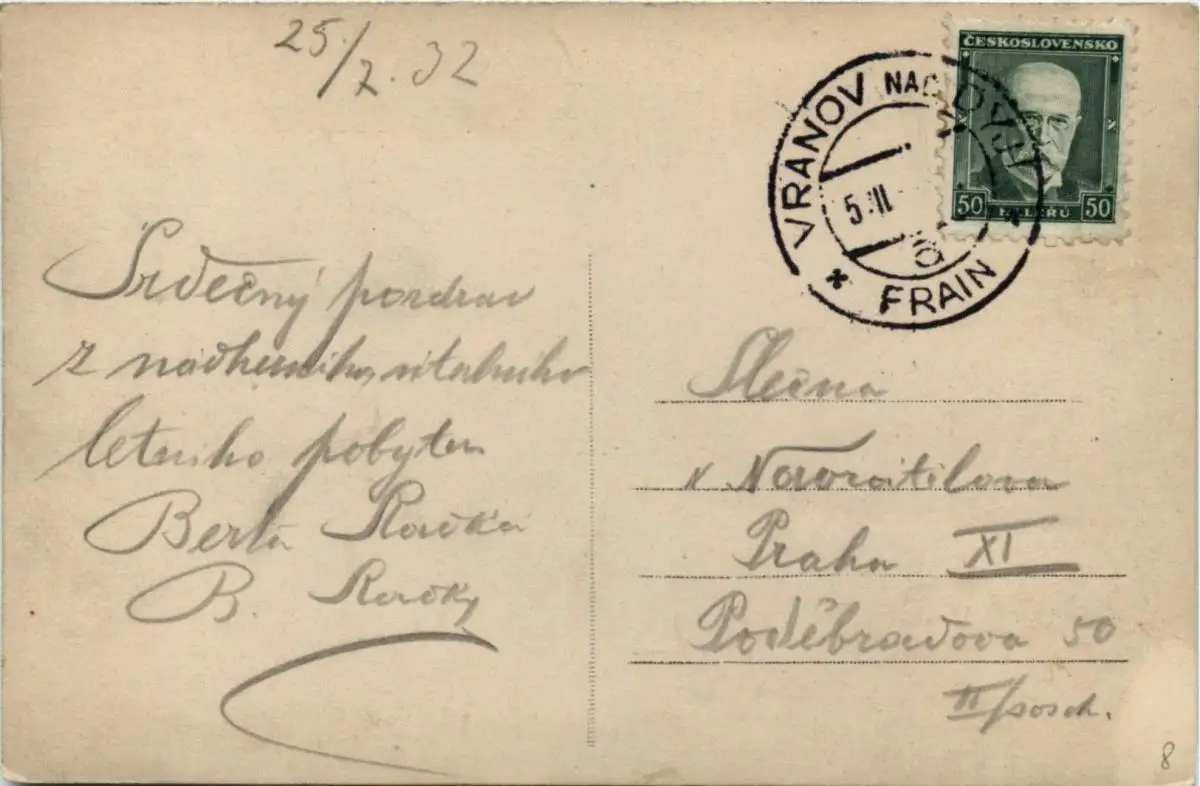 25/7.32
ČESKOSLOVENSKO
50 HALÉŘŮ 50
VRANOV NAD DYJÍ
5.VII
* FRAIN *
Srdečný pozdrav
z nádherného
letního pobytu
Berta
B.
Slečna
V Navrátilova
Praha XI
Poděbradova 50
II/posch.
8